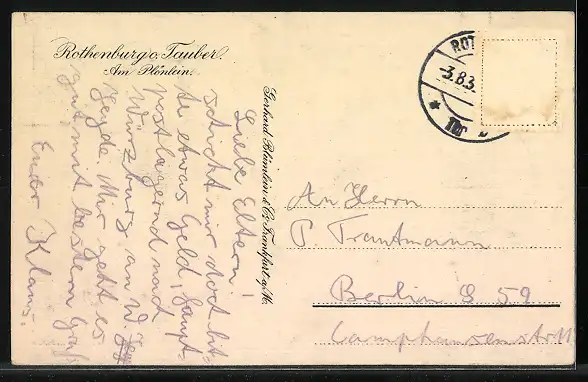 Rothenburg o. Tauber.
Am Plönlein.
Liebe Eltern!
schickt mir doch bit-
te etwas Geld, haupt-
postlagernd nach
Würzburg an W.
Heyde. Mir geht es
gut mit bestem Gruß
Euer Klaus.
Gerhard Blümlein & Co. Frankfurt a/M.
ROT
-3.8.3
An Herrn
P. Trautmann
Berlin S 59
Camphausenstr 11